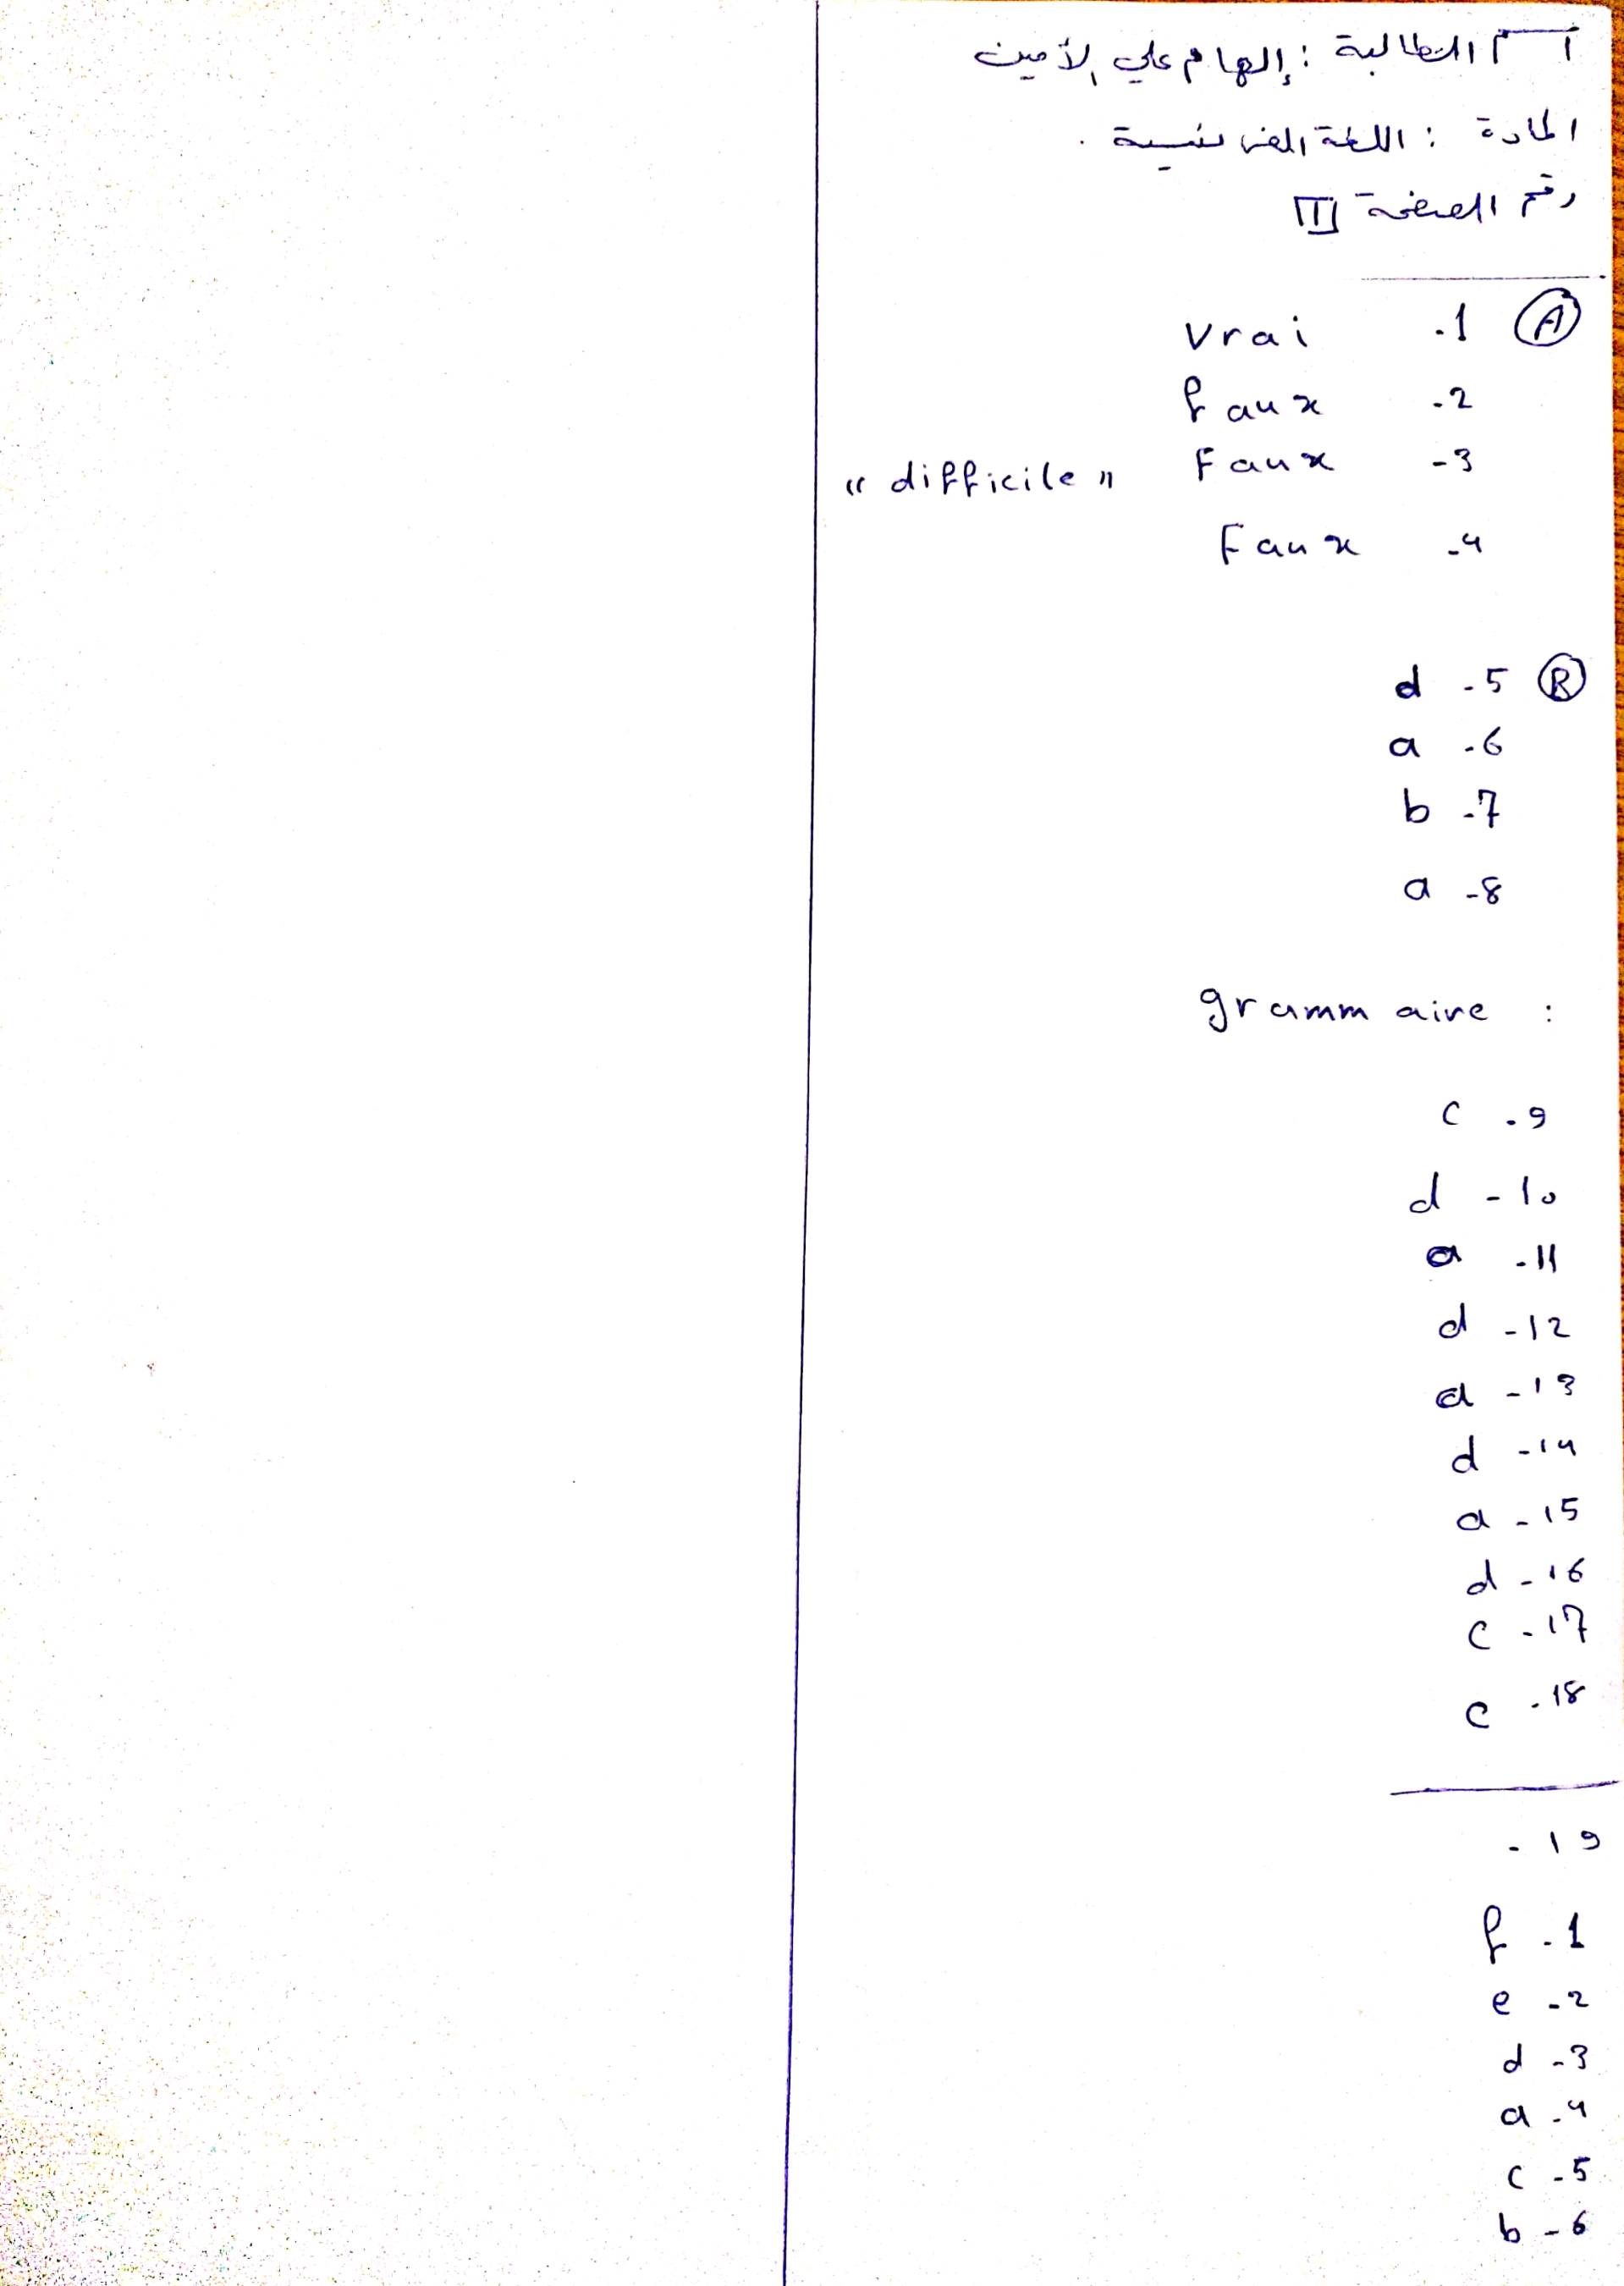 اسم الطالبة : إلهام علي الأمين
المادة : اللغة الفرنسية .
رقم الصفحة 1
A 1. Vrai
2- faux
3- Faux "difficile"
4- Faux
B 5- d
6- a
7- b
8- a
grammaire :
9. c
10- d
11- a
12- d
13- a
14- d
15- a
16- d
17- c
18. c
19-
1. f
2- e
3- d
4- a
5- c
6- b